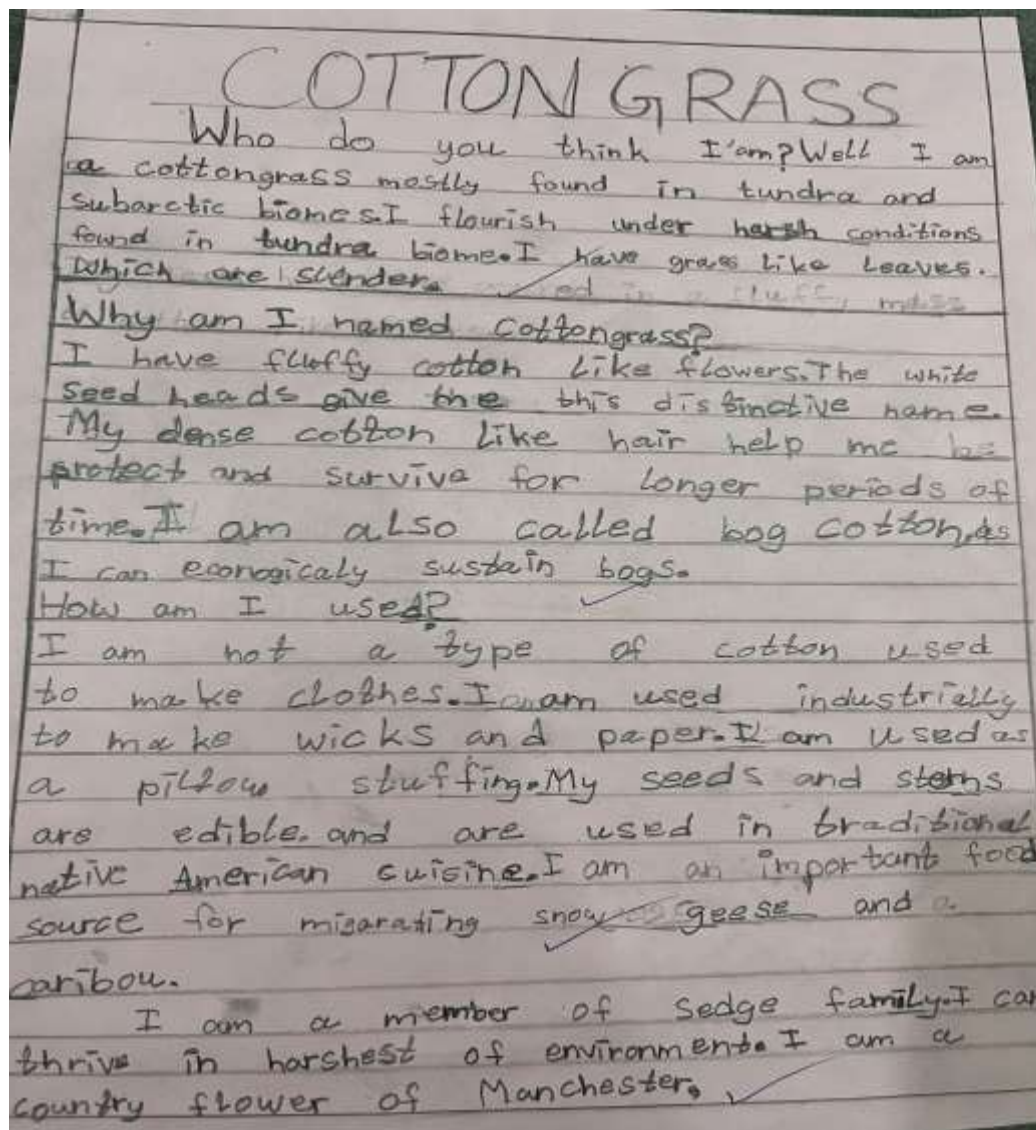 COTTON GRASS
Who do you think I'am? Well I am
a cottongrass mostly found in tundra and
subarctic biomes. I flourish under harsh conditions
found in tundra biome. I have grass like leaves.
Which are slender.
Why am I named cottongrass?
I have fluffy cotton like flowers. The white
seed heads give the this distinctive name.
My dense cotton like hair help me
protect and survive for longer periods of
time. I am also called bog cotton, as
I can econogicaly sustain bogs.
How am I used?
I am not a type of cotton used
to make clothes. I am used industrially
to make wicks and paper. I am used as
a pillow stuffing. My seeds and stems
are edible. and are used in traditional
native American cuisine. I am an important food
source for migarating snow geese and
caribou.
I am a member of sedge family. I can
thrive in harshest of environment. I am a
country flower of Manchester.